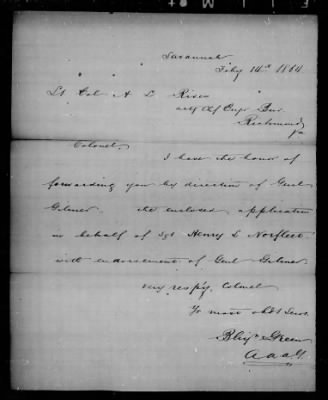 Savannah
Feby 14th 1864
Lt Col A L Rives
actg Chf Engr Bur.
Richmond
Va
Colonel,
I have the honor of
forwarding you by direction of Genl
Gilmer, the enclosed application
in behalf of Sgt Henry L Norfleet
with endorsement of Genl Gilmer
very respy, Colonel
Yr most obdt Servt.
Green
A a a G.